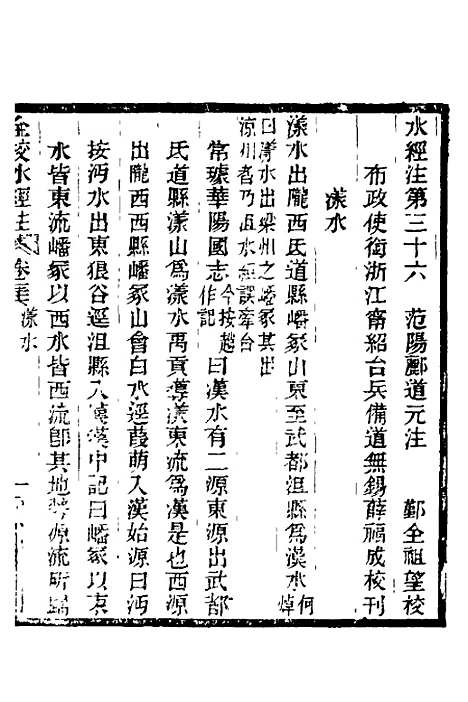 水經注第三十六　范陽酈道元注　鄞全祖望校
布政使銜浙江甯紹台兵備道無錫薛福成校刊
漾水
漾水出隴西氐道縣嶓冢山東至武都沮縣爲漢水何焯
曰漾水出梁州之嶓冢其出
涼州者乃西水經誤牽合
常璩華陽國志今按趙作記曰漢水有二源東源出武都
氐道縣漾山爲漾水禹貢導漾東流爲漢是也西源
出隴西西縣嶓冢山會白水逕葭萌入漢始源曰沔
按沔水出東狼谷逕沮縣入漢漢中記曰嶓冢以東
水皆東流嶓冢以西水皆西流卽其地勢源流所歸
全校水經注　卷三六　漾水　一